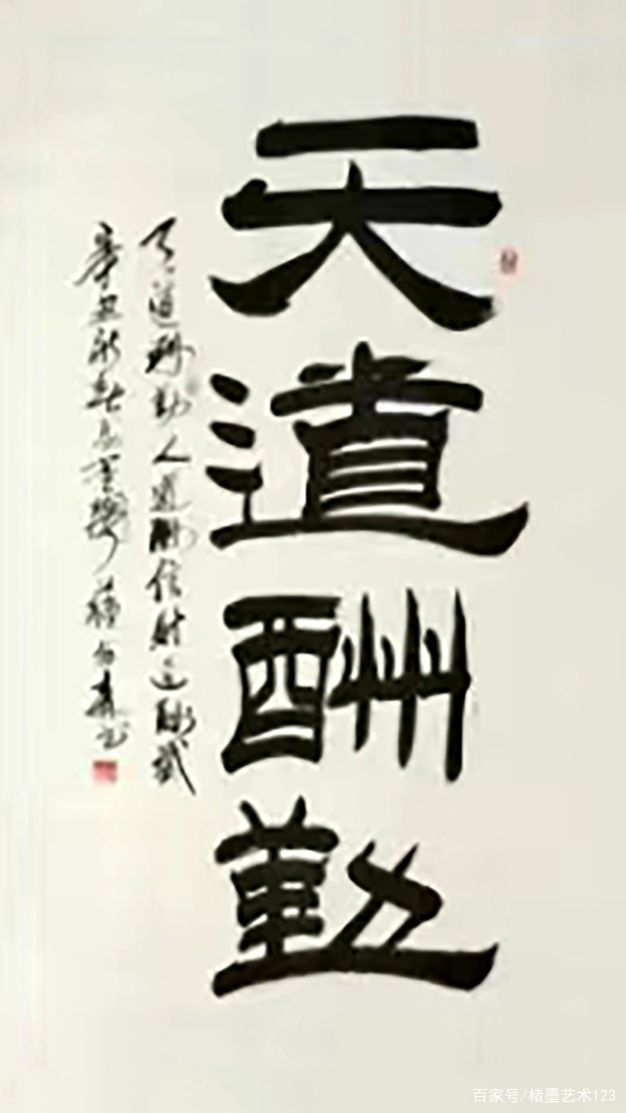 天道酬勤
天道酬勤人道酬信财道酬诚
辛丑新春
书
百家号/楮墨艺术123